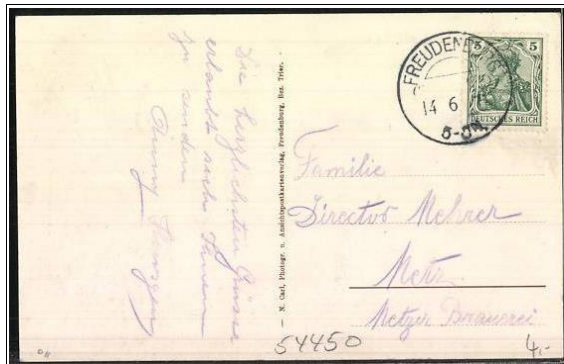 Die herzlichsten Grüsse
erlaubt sich Ihnen
zu senden
Anny
N. Carl, Photogr. u. Ansichtspostkartenverlag, Freudenburg, Bez. Trier.
FREUDENBURG
14 6
5-6N
5
DEUTSCHES REICH
Familie
Director Mehrer
Metz
Metzer Brauerei
54450
4,-